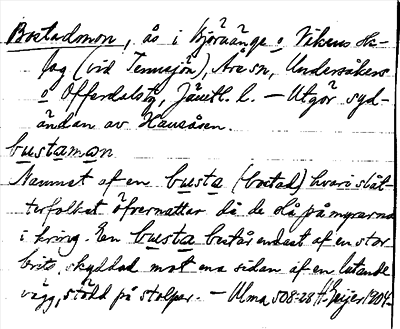 Bostadomon, ås i Björnänge o Vikens sk-
fag (vid Tennsjön), Åre sn, Undersåkers
o Offerdals tg, Jämtl. l. — Utgör syd-
ändan av Hausåsen.
bustamon
Namnet af en busta (bostad) hvari slåt-
terfolket öfvernattar då de slå på myrarna
i kring. En busta består endast af en stor
brits, skyddad mot ena sidan af en lutande
vägg, stödd på stolpar. — Ulma 508:28 H. Geijer 1904.